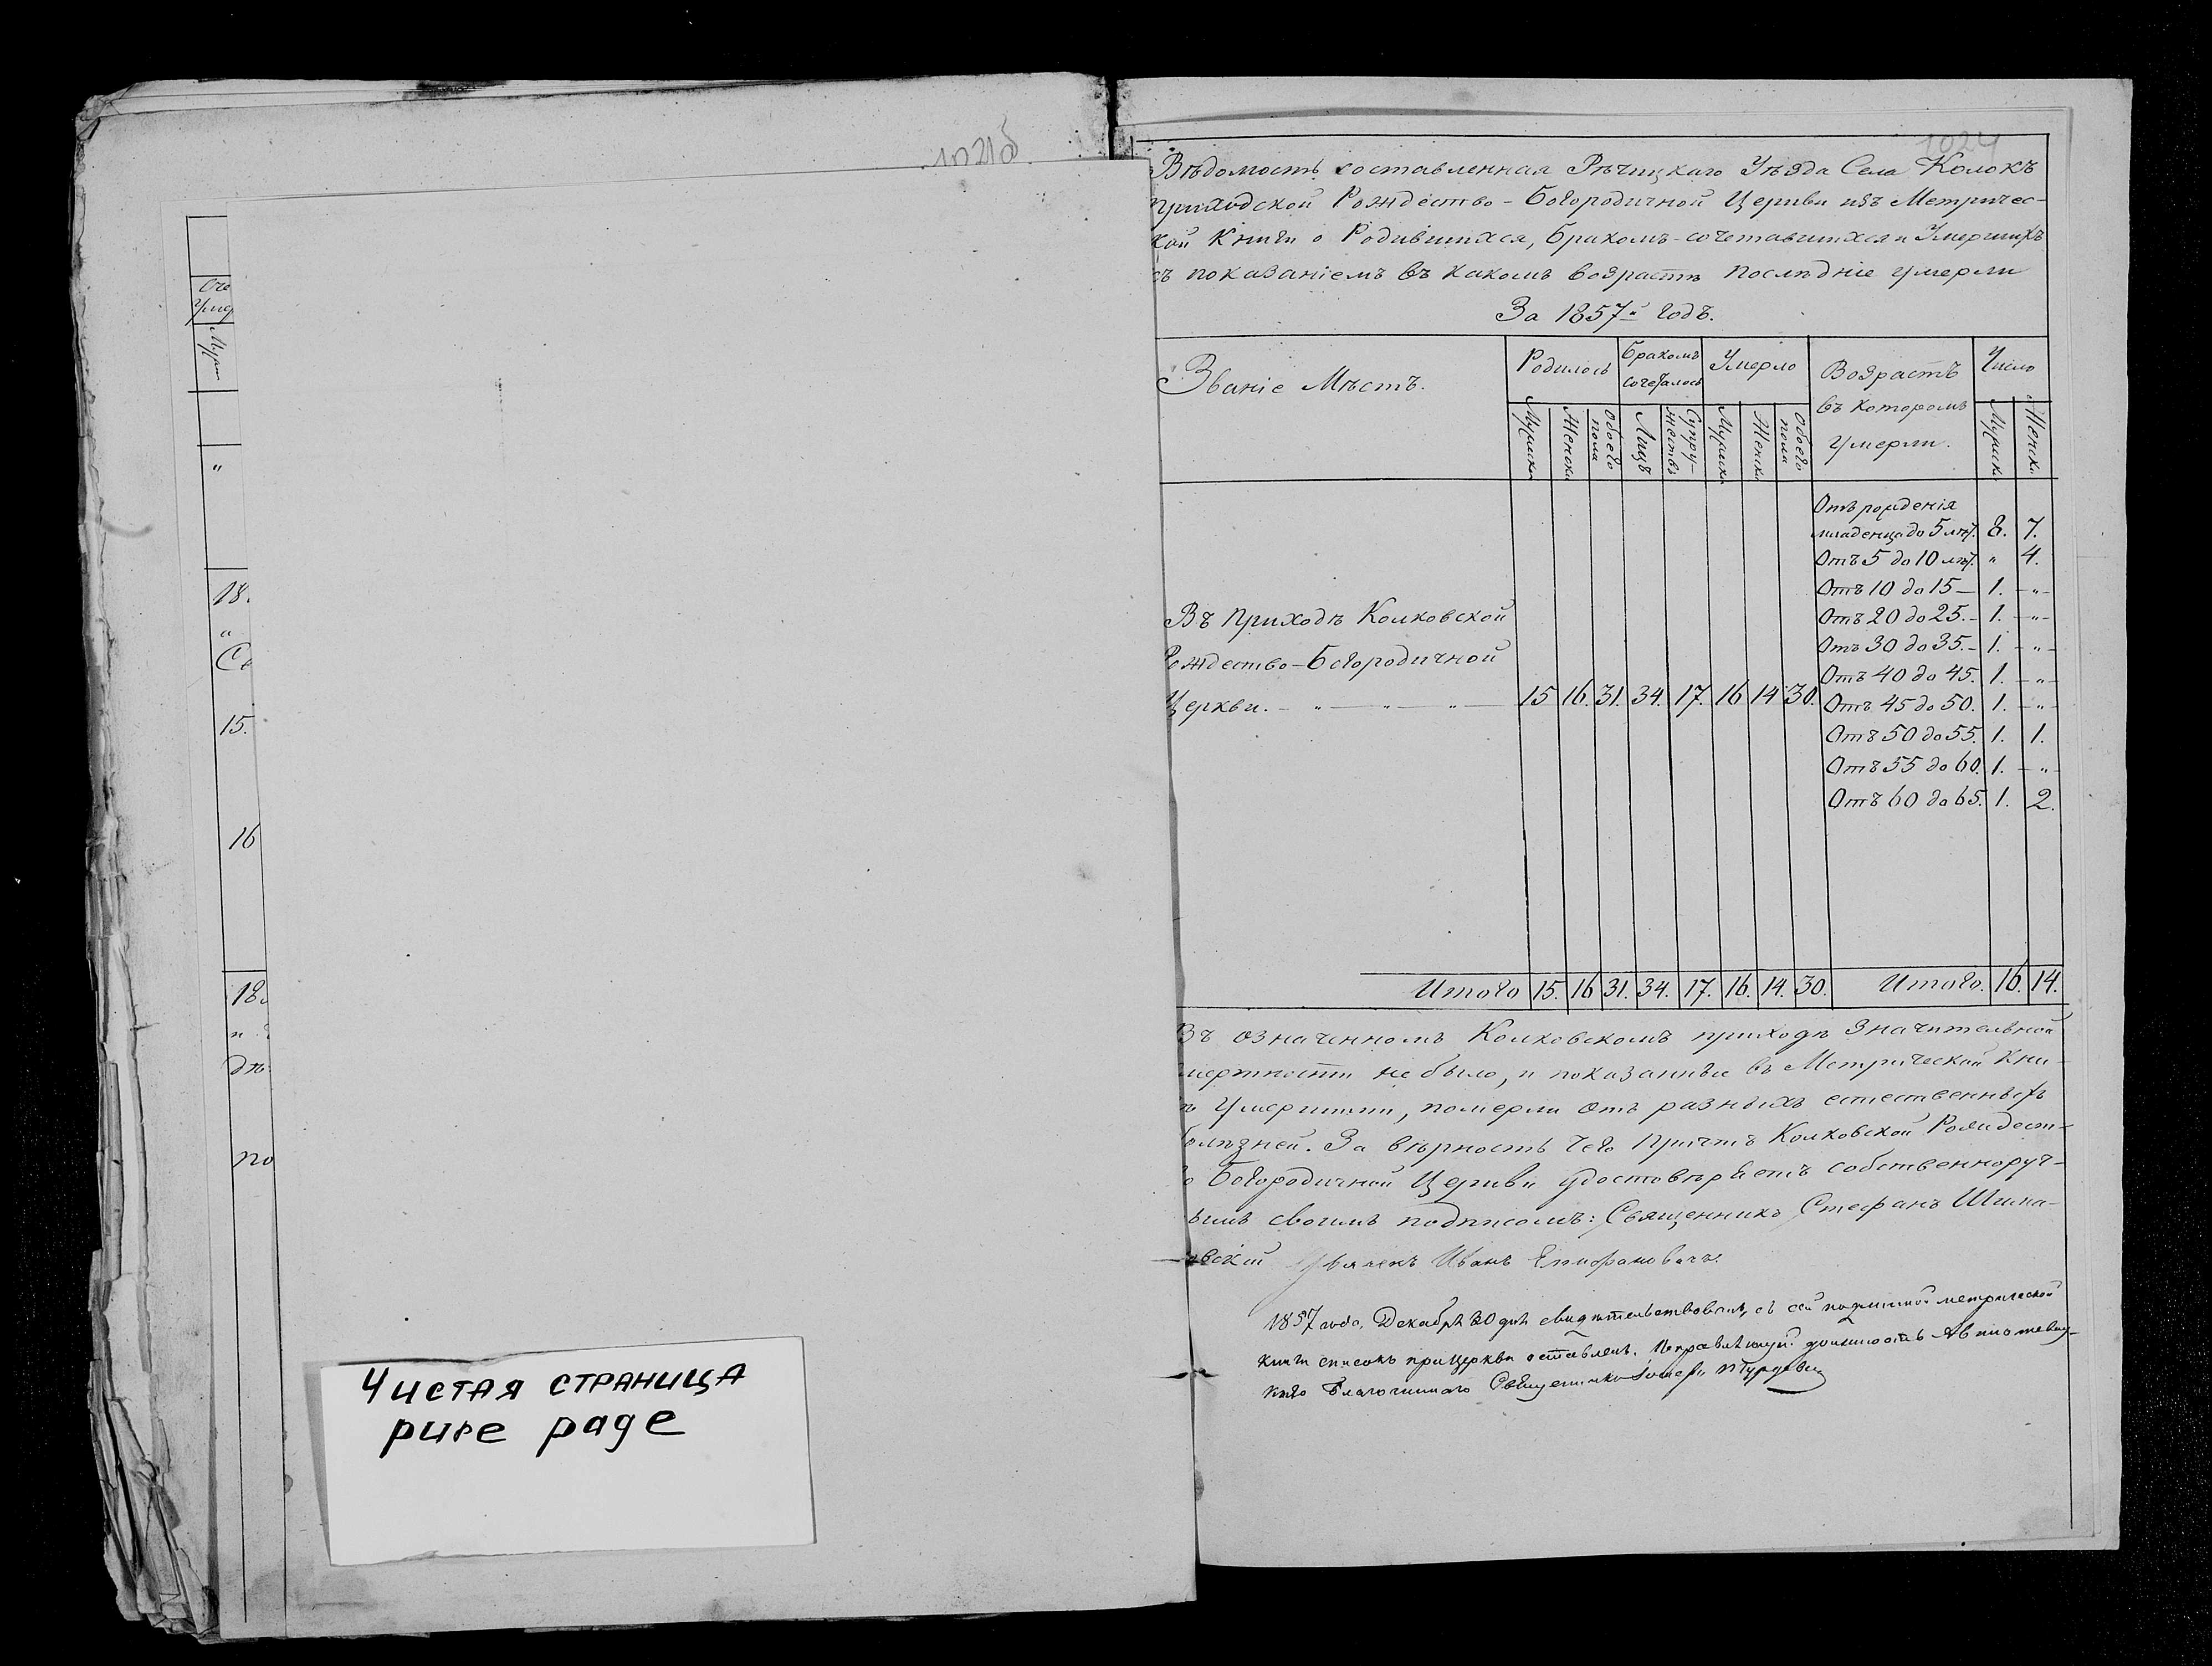 1024
Вѣдомость составленная Рѣчицкаго Уѣзда Села Колокъ
приходской Рождество-Богородичной Церкви изъ Метричес-
кой Книги о Родившихся, Бракомъ-сочетавшихся и Умершихъ
съ показаніемъ въ какомъ возрастѣ послѣдніе умерли
За 1857й годъ.
Званіе Мѣстъ. Родилось Бракомъ сочеталось Умерло Возрастъ въ которомъ умерли. Число
Мужска Женска Обоего пола Лицъ Супру-жествъ Мужска Женска Обоего пола Мужск. Женск.
Отъ рожденія
младенца до 5 лѣт. 8. 7.
Отъ 5 до 10 лѣт. " 4.
Отъ 10 до 15 — 1. - " -
Отъ 20 до 25. - 1. - " -
Отъ 30 до 35. - 1. - " -
Отъ 40 до 45. 1. - " -
Отъ 45 до 50. 1. - " -
Отъ 50 до 55. 1. 1.
Отъ 55 до 60. 1. - " -
Отъ 60 до 65. 1. 2.
Въ приходѣ Колковской
Рождество-Богородичной
Церкви. - " - " - " - 15 16. 31. 34. 17. 16 14 30.
Итого 15. 16 31. 34. 17. 16. 14. 30. Итого. 16. 14.
Въ означенномъ Колковскомъ приходѣ значительной
смертности не было, и показанные въ Метрической Кни-
гѣ умершими, померли отъ разныхъ естественныхъ
болѣзней. За вѣрность чего Причтъ Колковской Рождест-
во Богородичной Церкви удостовѣряетъ собственноруч-
нымъ своимъ подписомъ: Священникъ Стефанъ Шима-
овскій Иванъ Епифановичъ.
1857 года, Декабря 20 дня свидѣтельствовалъ, съ сей подлинной метрической
книги списокъ при церкви оставленъ. Исправляющій должность
каго Благочиннаго Священникъ
Чистая страница
pure page
18.
"
15.
16
18.
по